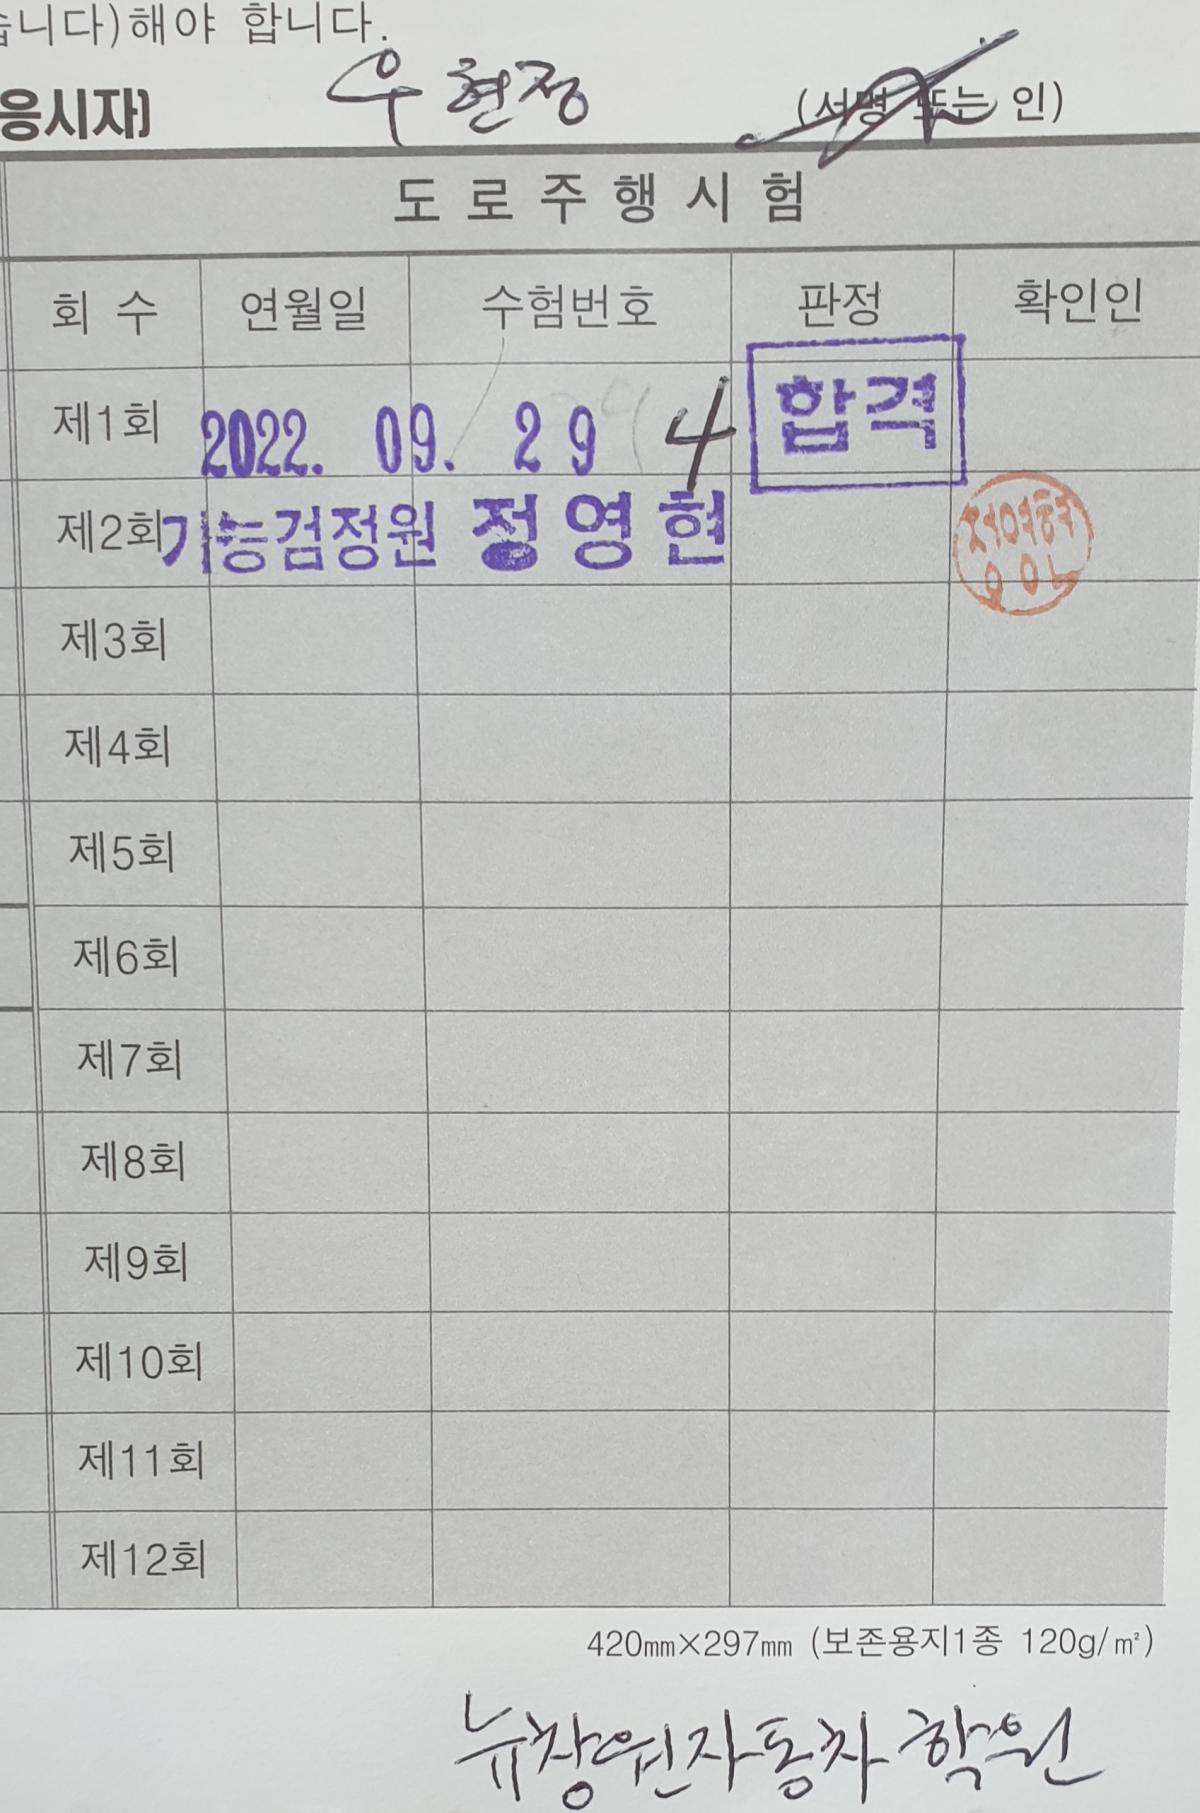 습니다)해야 합니다.
응시자] 우현정 (서명 또는 인)
도로주행시험
회 수 연월일 수험번호 판정 확인인
제1회 2022. 09. 29 4 합격
제2회 기능검정원 정영현 정영현인
제3회
제4회
제5회
제6회
제7회
제8회
제9회
제10회
제11회
제12회
420㎜×297㎜ (보존용지1종 120g/㎡)
뉴창원자동차학원